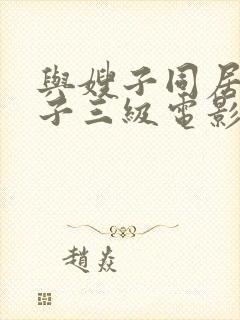 與嫂子同居
子三級電影
趙焱